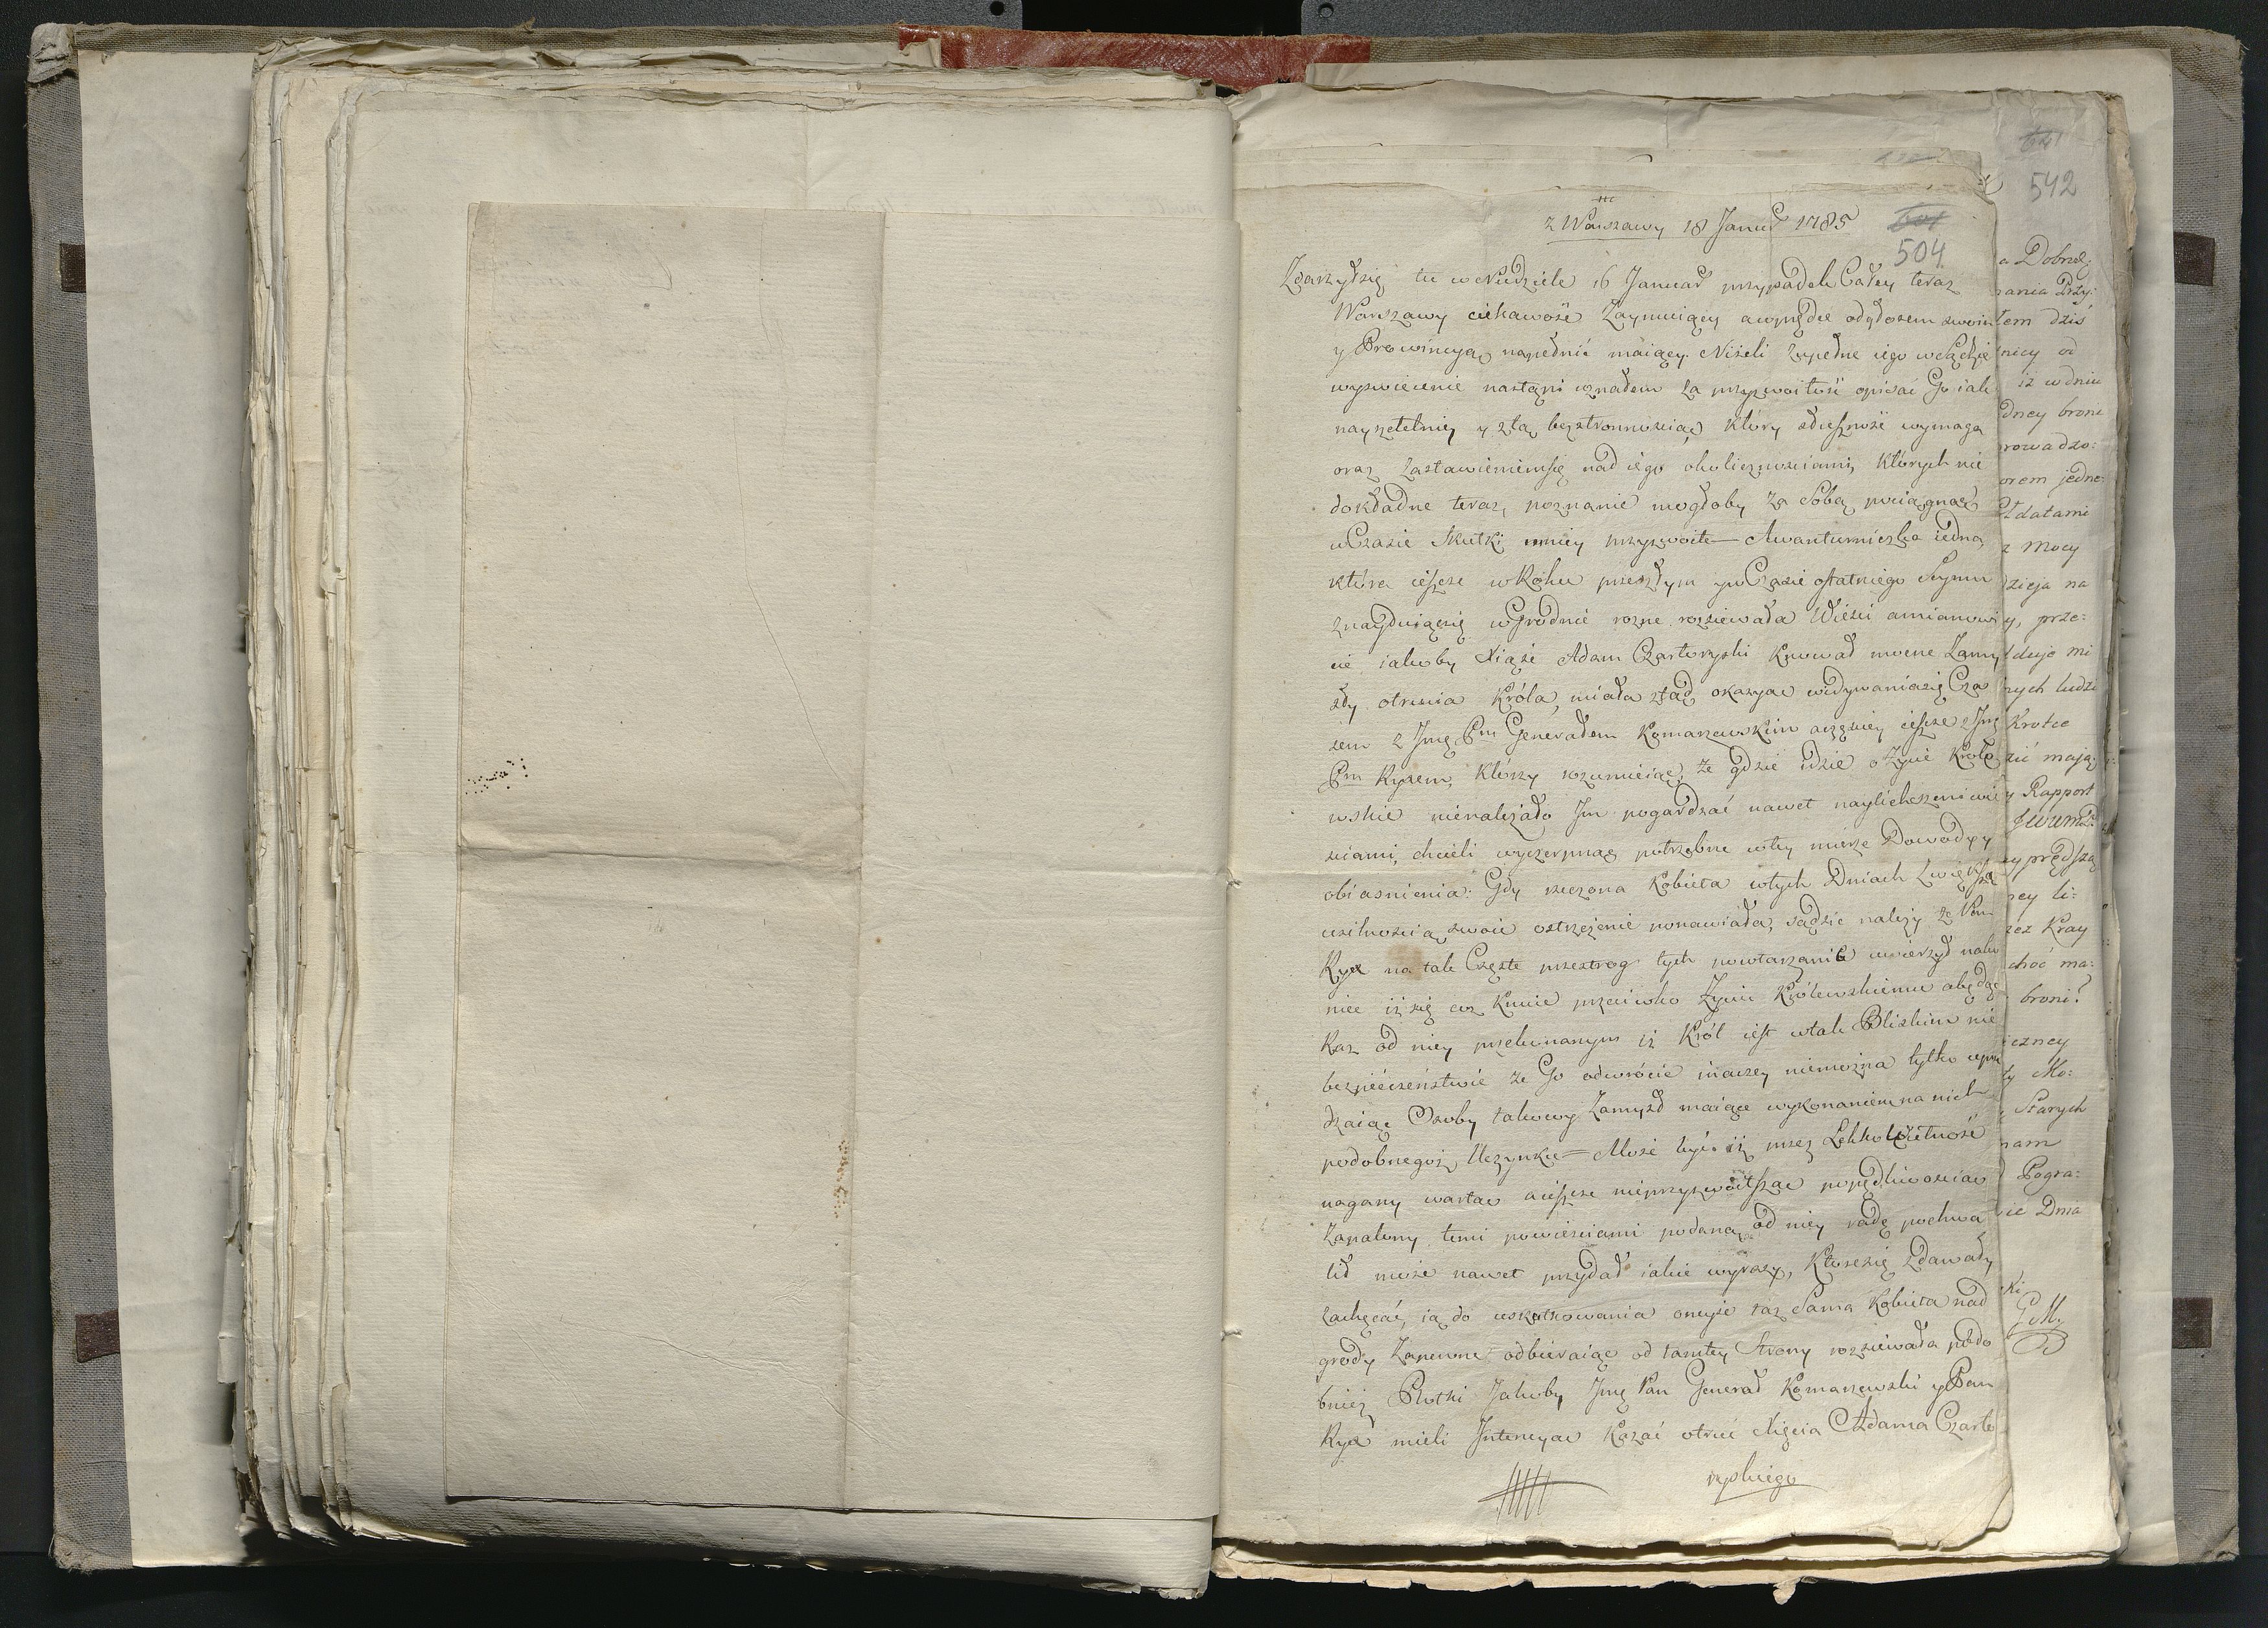 641
542
z Warszawy 18 Januar 1785
601
504
Zdarzył się tu w Niedziele 16 Januar przypadek Całey teraz
Warszawy ciekawość Zaymuiący a wprędce odgłosem swoim
y Prowincyą napełnić maiący. Niżeli zupełne iego w Sądzie
wyswiecenie nastąpi uznałem za przyzwoitość opisać Go iak
nayrzetelniey y z tą bezstronnoscią, który słuszność wymaga
oraz zastawieniem się nad iego okolicznosciami, których nie
dokładne teraz, poznanie mogłoby za Sobą pociągnąć
w Czasie Skutki mniey przyzwoite — Awanturniczka iedna,
która ieszcze w Roku przeszłym y w Czasie ostatniego Seymu
znayduiącsię w Grodnie rozne rozsiewała Wieści a mianowi
cie iakoby Xiąże Adam Czartoryski knował mocne Zamy
sły otrucia Króla, miała ztąd okazyą widywania się Cza
sem z Jmę Pm Generałem Komarzewskim a częściey ieszcze z Jmę
Pm Ryxem, którzy rozumieiąc, że gdzie idzie o Życie Króle
wskie nienależało Jm pogardzać nawet naylichszemi wie
sciami, chcieli wyczerpnąć potrzebne w tey mierze Dowody y
obiasnienia. Gdy rzeczona Kobieta w tych Dniach z większą
usilnoscią swoie ostrzeżenie ponawiała, sądzić należy że Pan
Ryx na tak Częste przestrog tych powtarzanie uwierzył nako
niec iż się cos knuie przeciwko Życiu Królewskiemu a będąc
Raz od niey przekonanym iż Król iest w tak Bliskim nie
bezpieczeństwie że Go odwrócić inaczey niemożna tylko uprze
dzaiąc Osoby takowy Zamysł maiące wykonaniem na nich
podobnegoż Uczynku — Może być iż przez Lekkowierność
nagany wartą a ieszcze nieprzyzwoitszą popędliwoscią
Zapalony temi powiesciami podaną od niey radę pochwa
lił może nawet przydał iakie wyrazy, które się zdawały
zachęcać, ią do uskutkowania oneyże taż Sama Kobieta nad
grody Zapewne odbieraiąc od tamtey Strony rozsiewała podo
bnież Plotki Jakoby Jmę Pan Generał Komarzewski y Pan
Ryx mieli Jntencyą Kazać otruć Xięcia Adama Czarto
ryskiego
a Dobrod:
ania Przy:
łem dziś
nicy od
iż w dniu
dney broni
rowadzo:
orem jedne:
łdatami
z Mocy
dzieja na
y, prze:
lduje mi
nych ludzi
Krotce
zić mają
y Rapport
y prędszą
ney li:
zez Kray
choć ma:
broni?
iczney
ty Mo:
Starych
nam
Pogra:
ie Dnia
ki
G M.